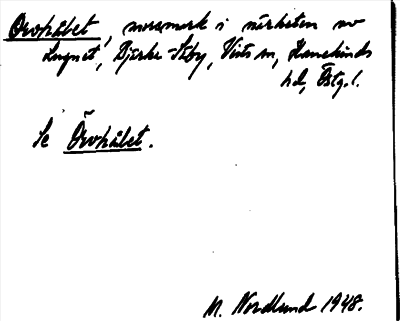 Orrhålet, mossmark i närheten av
Lugnet, Bjärka-Säby, Vists sn, Hanekinds
hd, Östg. l.
Se Örrhålet.
M. Nordlund 1948.